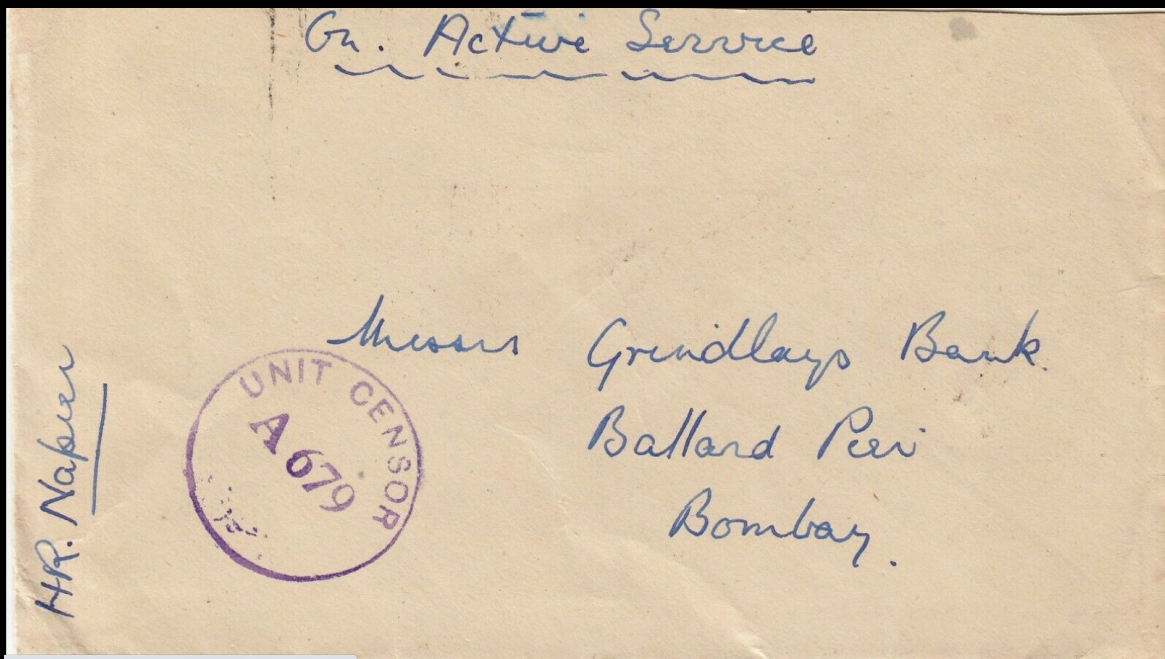 On. Active Service
Messrs Grindlays Bank.
Ballard Pier
Bombay.
UNIT CENSOR
A 679
HR. Napier